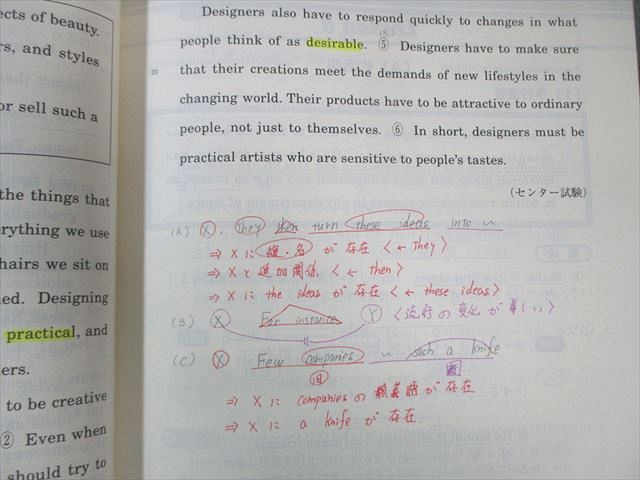 ects of beauty.
rs, and styles
or sell such a
the things that
erything we use
hairs we sit on
ed. Designing
practical, and
ers.
to be creative
② Even when
should try to
Designers also have to respond quickly to changes in what
people think of as desirable. ⑤ Designers have to make sure
20 that their creations meet the demands of new lifestyles in the
changing world. Their products have to be attractive to ordinary
people, not just to themselves. ⑥ In short, designers must be
practical artists who are sensitive to people's tastes.
(センター試験)
(A) X, They then turn these ideas into 〜
⇒ Xに 複・名 が 存在 〈← they〉
⇒ Xと 追加関係 〈← then〉
⇒ Xに the ideas が 存在 〈← these ideas〉
(B) X For instance Y 〈流行の変化が 〉
(C) X Few companies 〜 such a knife
旧
⇒ Xに companiesの 類義語が存在
⇒ Xに a knife が 存在.